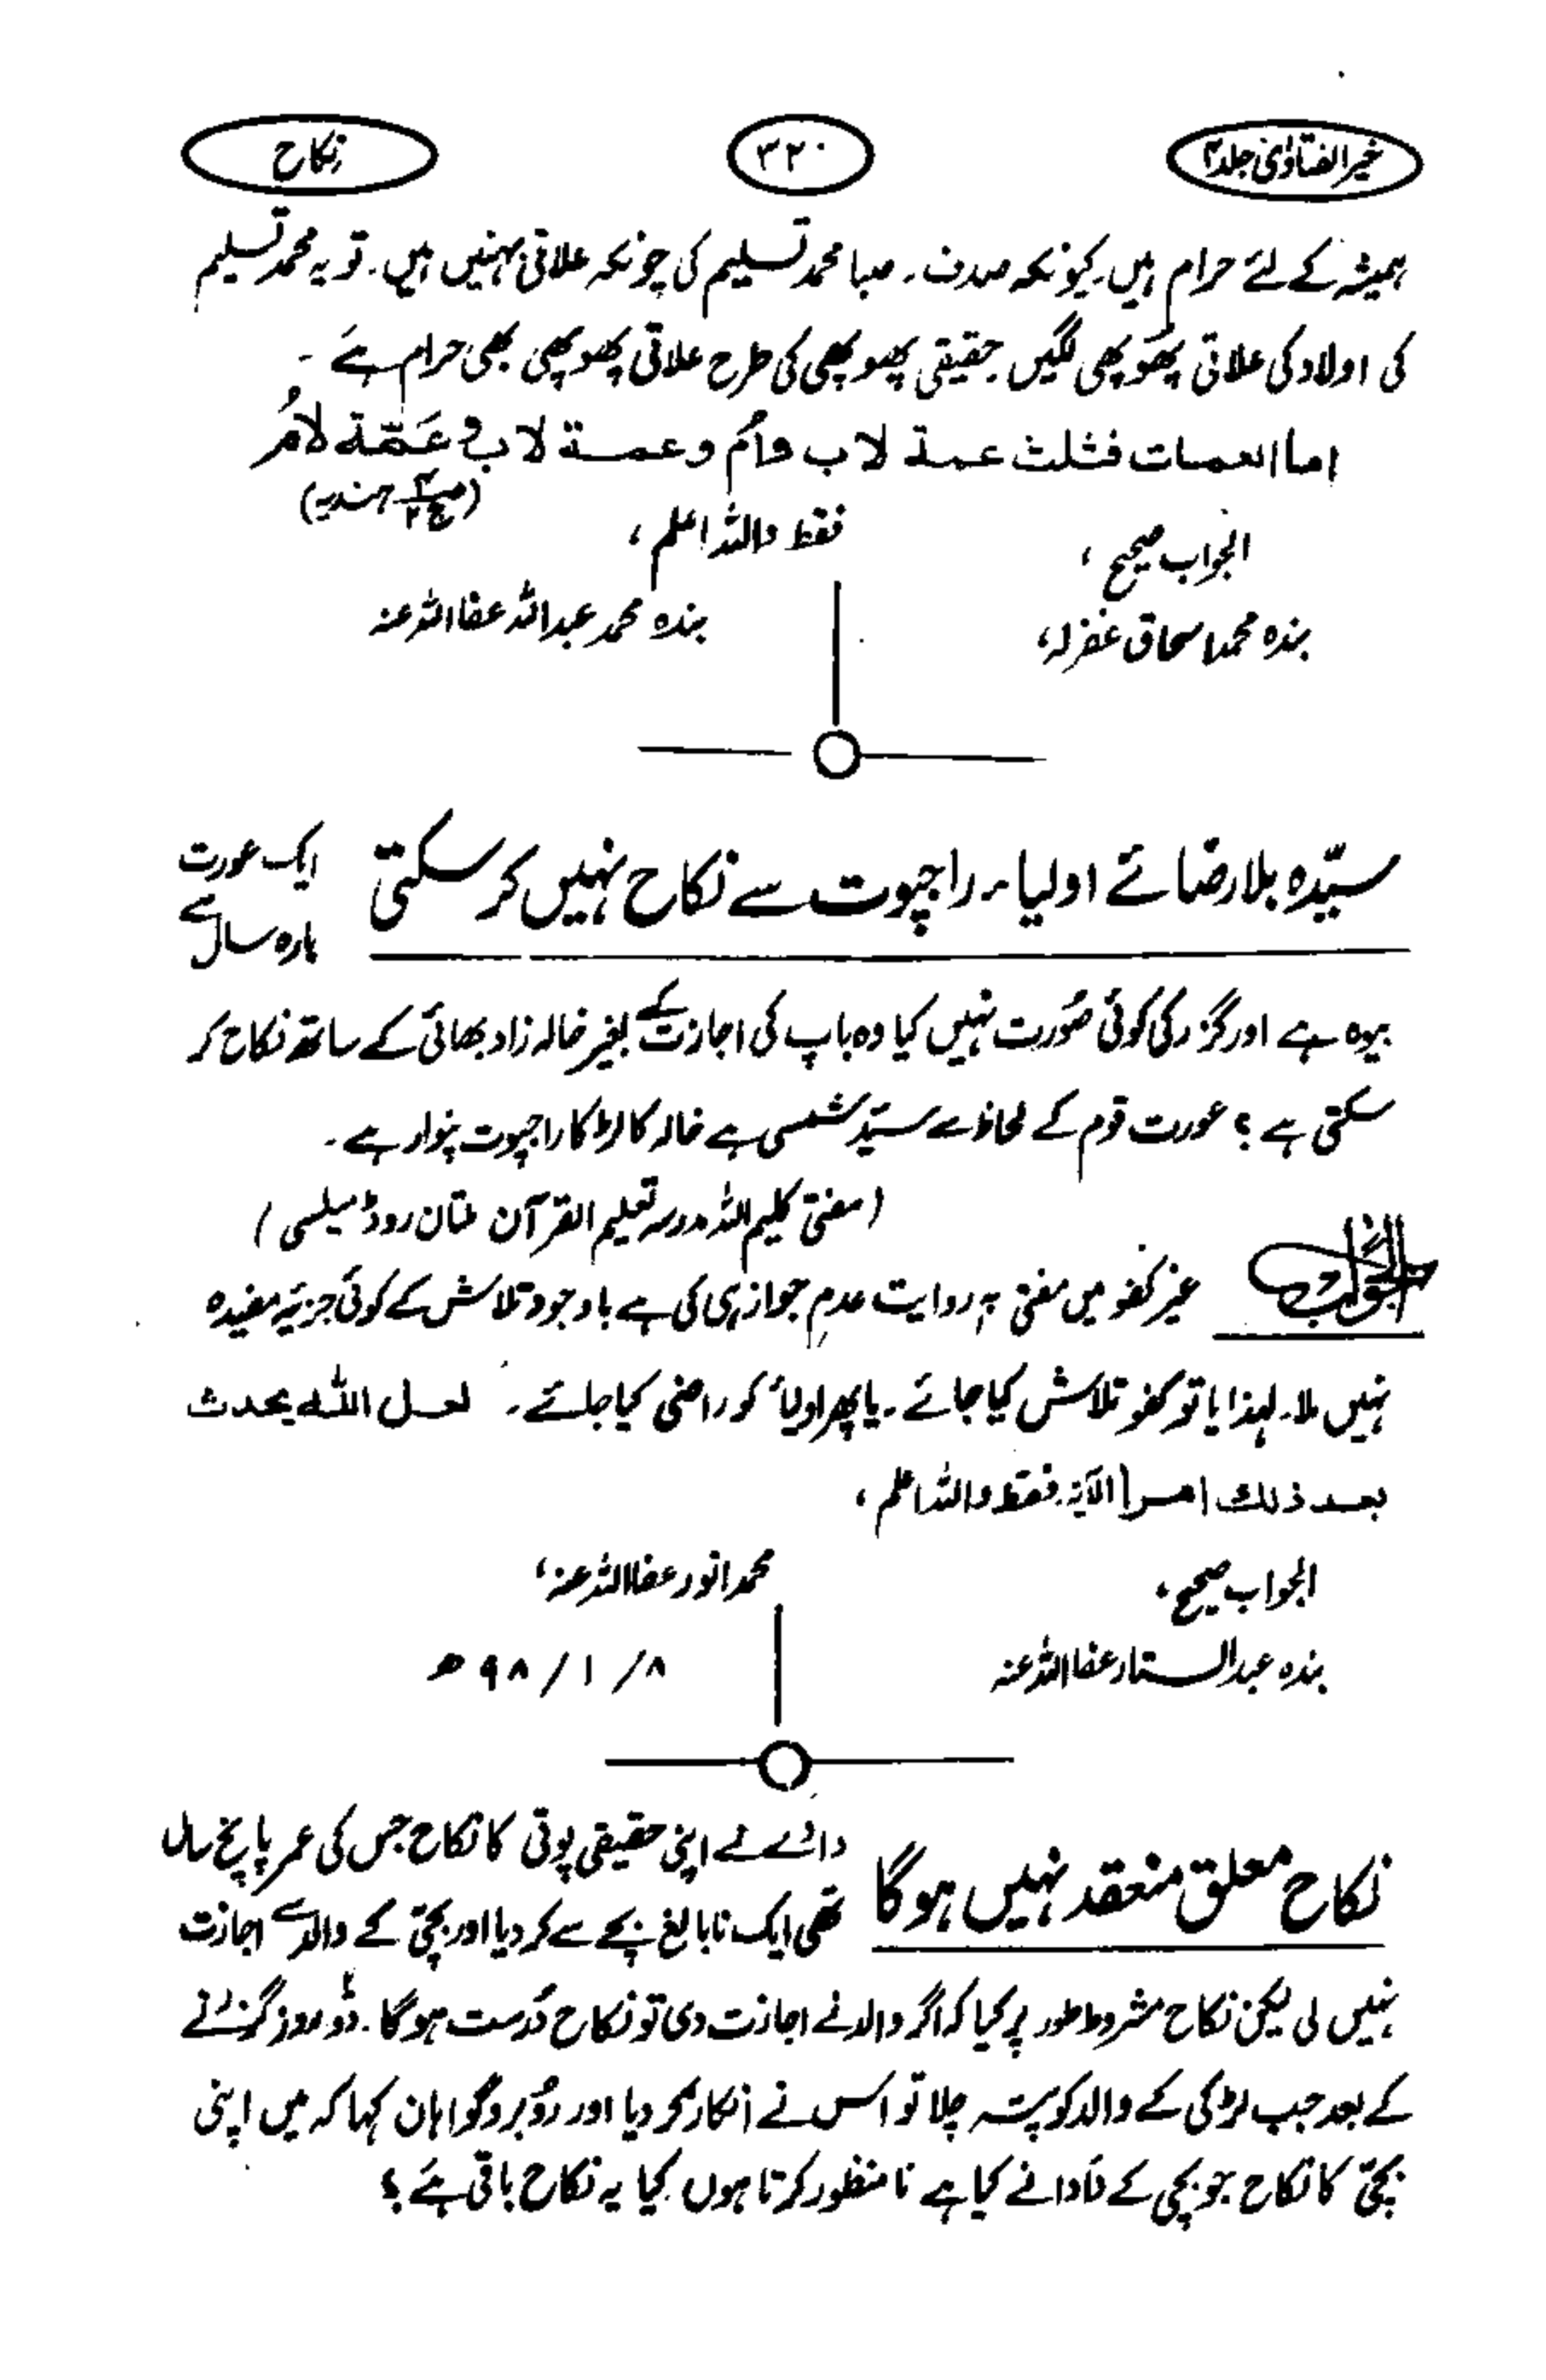 خیر الفتاویٰ جلد ۴
۳۲۰
نکاح
ہمیشہ کے لئے حرام ہیں۔ کیونکہ صدف۔ صبا محمد تسلیم کی چونکہ علاتی بہنیں ہیں۔ تو یہ محمد تسلیم
کی اولاد کی علاتی پھوپھی لگیں حقیقی پھوپھی کی طرح علاتی پھوپھی بھی حرام ہے۔
اما العمات فثلث عمة لاب وام وعمة لاب وعمة لام
ہندیہ)
فقط واللہ اعلم،
الجواب صحیح،
بندہ محمد اسحاق غفرلہ،
بندہ محمد عبداللہ عفا اللہ عنہ
سیّدہ بلا رضائے اولیاء راجپوت سے نکاح نہیں کر سکتی
ایک عورت
بارہ سال سے
بیوہ ہے اور گزر کی کوئی صُورت نہیں کیا وہ باپ کی اجازت کے بغیر خالہ زاد بھائی کے ساتھ نکاح کر
سکتی ہے؟ عورت قوم کے لحاظ سے سیّد شمسی ہے خالہ کا لڑکا راجپوت پنوار ہے۔
(مفتی کلیم اللہ مدرسہ تعلیم القرآن ملتان روڈ میلسی)
الجواب
غیر کفو میں مفتیٰ بہ روایت عدمِ جواز ہی کی ہے باوجود تلاش کے کوئی جزیئہ مفیدہ
نہیں ملا۔ لہذا یا تو کفو تلاش کیا جائے۔ یا پھر اولیاء کو راضی کیا جائے۔ لعل اللہ یحدث
بعد ذلك امرا الآیۃ۔ فقط واللہ اعلم،
الجواب صحیح،
محمد انور عفا اللہ عنہ،
بندہ عبدالستار عفا اللہ عنہ
۸/ ۱/ ۹۸ ھ
نکاح معلق منعقد نہیں ہوگا
دادے نے اپنی حقیقی پوتی کا نکاح جس کی عمر پانچ سال
تھی ایک نابالغ بچے سے کر دیا اور بچی کے والد سے اجازت
نہیں لی لیکن نکاح مشروط طور پر کیا کہ اگر والد نے اجازت دی تو نکاح دُرست ہوگا۔ دُو روز گزرنے
کے بعد جب لڑکی کے والد کو پتہ چلا تو اس نے انکار کر دیا اور رُوبرو گواہان کہا کہ میں اپنی
بچی کا نکاح جو بچی کے دادا نے کیا ہے نامنظور کرتا ہوں۔ کیا یہ نکاح باقی ہے؟